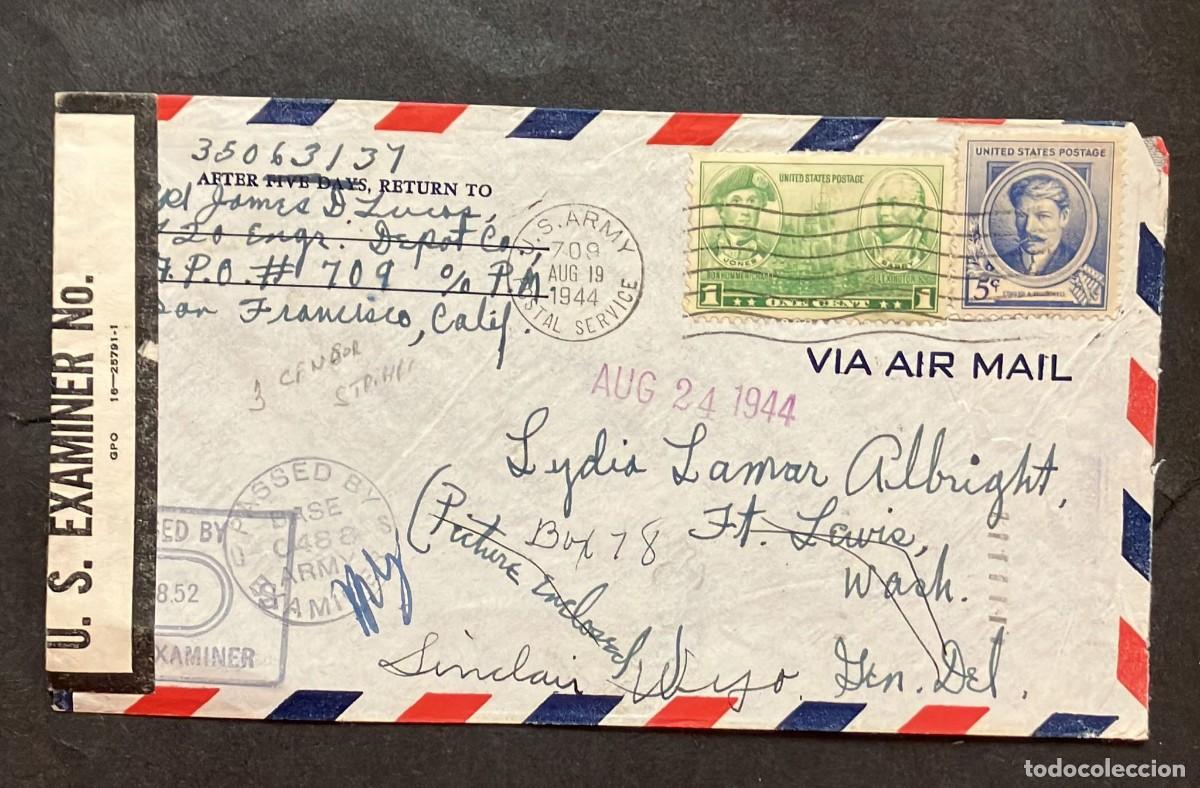 35063137
AFTER FIVE DAYS, RETURN TO
James D. Lucas,
Engr. Depot Co.,
A.P.O. # 709 % P.M.
San Francisco, Calif.
U.S. ARMY
709
AUG 19
1944
POSTAL SERVICE
UNITED STATES POSTAGE
JONES
BARRY
BONHOMME RICHARD
LEXINGTON
1 ONE CENT 1
UNITED STATES POSTAGE
5¢
VIA AIR MAIL
3 CENSOR
AUG 24 1944
Lydia Lamar Albright,
Box 78
Ft. Lewis,
Wash.
(Picture Enclosed)
Sinclair Wyo.
Gen. Del.
U. S. EXAMINER No.
GPO 16—25791-1
PASSED BY
BASE
ARMY
EXAMINER
SED BY
8.52
XAMINER
todocoleccion